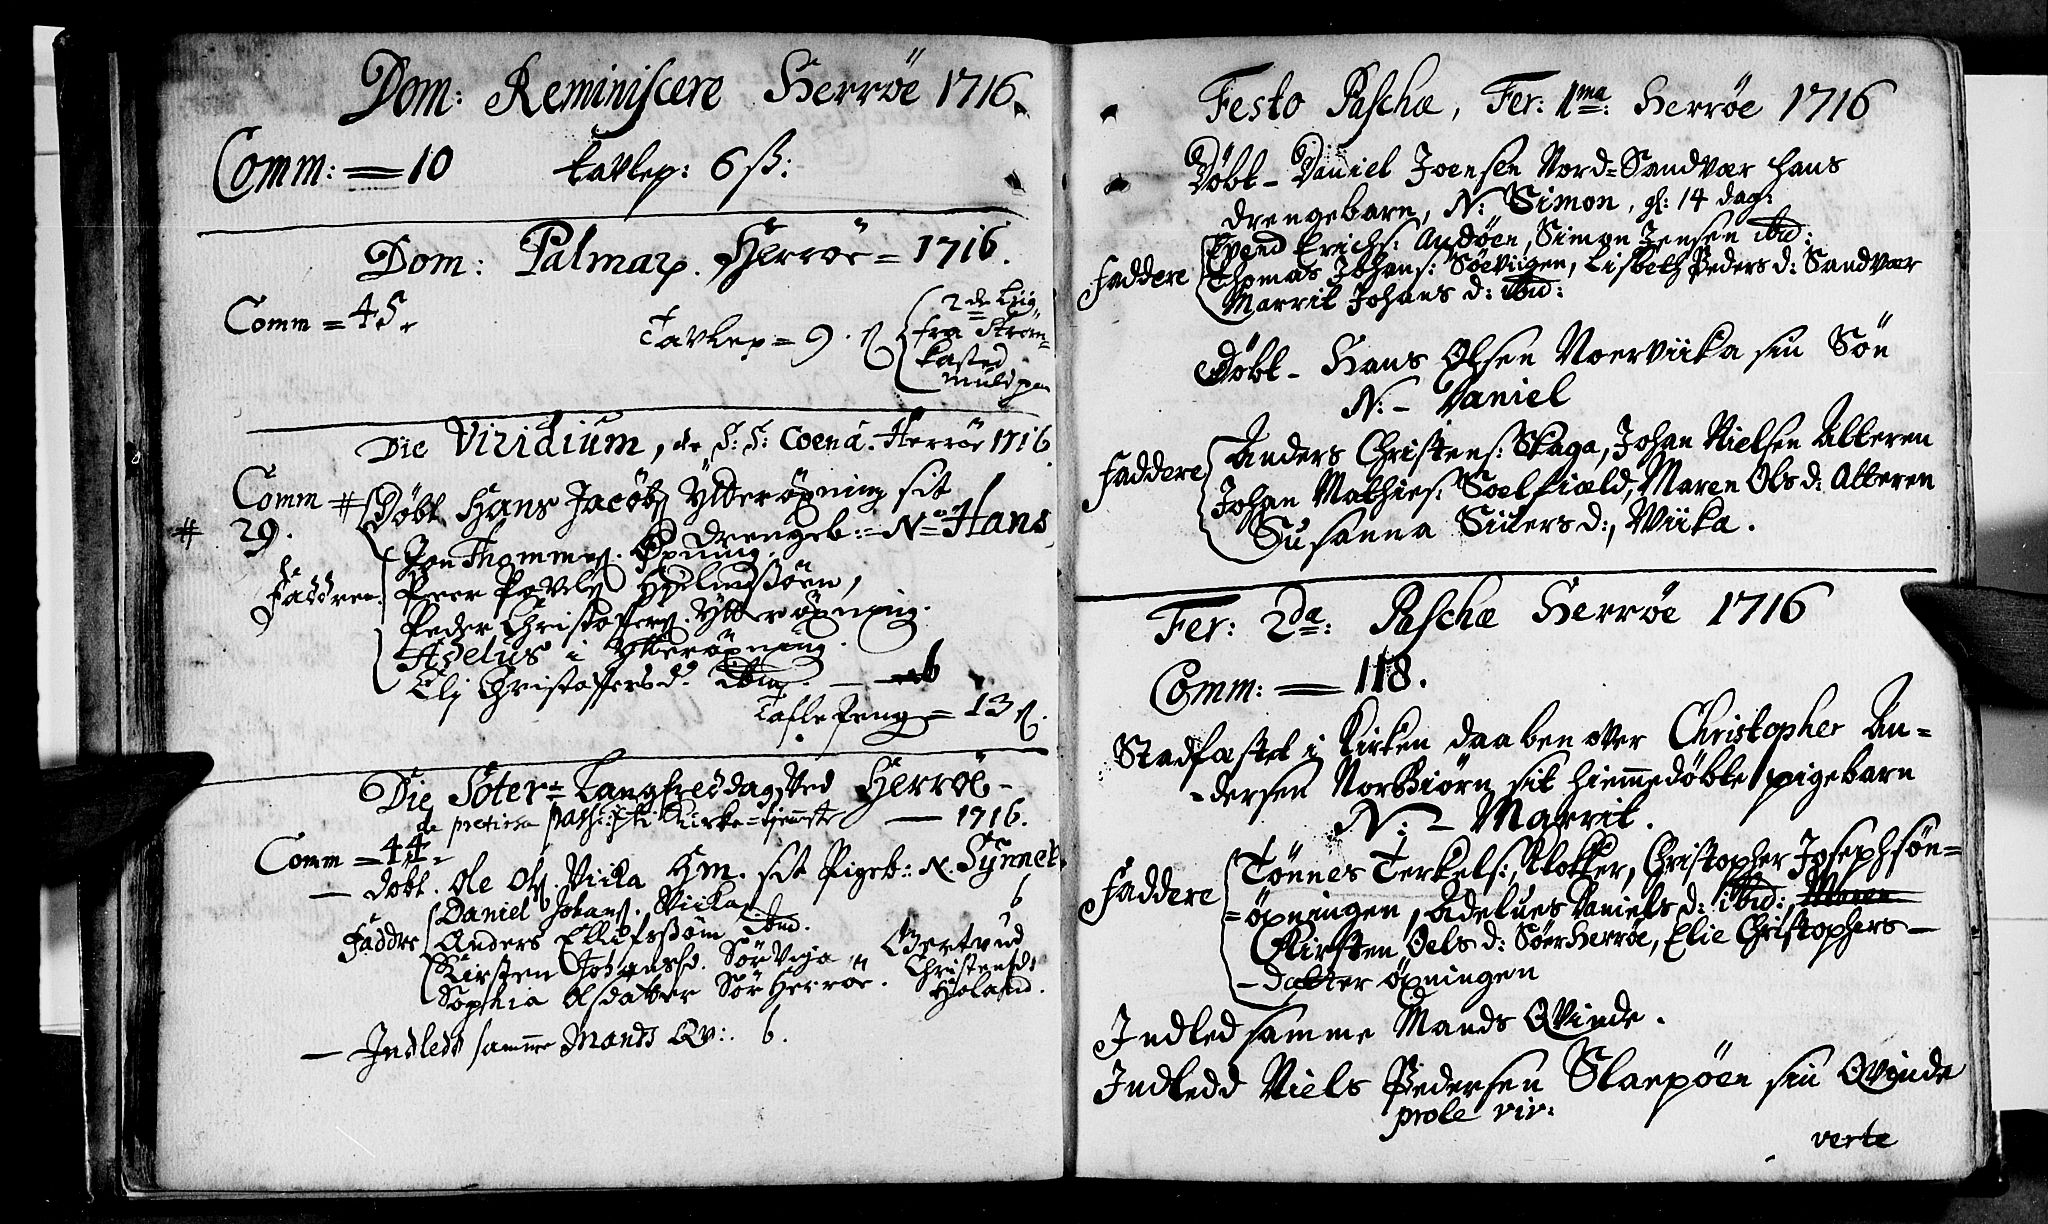 Dom: Reminiscere Herröe 1716
Comm: = 10 tavlep: 6 ß:
Dom: Palmar. Herröe = 1716.
Comm = 45.
Tavlep = 9. ß
2de Liig
fra Strøm-
kasted
muld paa
Die Viridium, de S: S: Coenâ. Herröe 1716
Comm # Döbt Hans Jacobs Ytteröpning sit
# 29. drengeb: = No Hans
Jon Thommes. Öpning.
Faddere. Peer Povels
Peder Christoffers. Ytteröpning.
Adelus i Ytteröpning.
Elj Christoffersd. ibid. — b
Tafle Peng = 13 ß.
Die Soter = Langfredag, Ved Herröe -
Kirke-tjenneste — 1716.
Comm = 44.
— döbt. Ole Ols. Viika sit Pigeb: N. Synnet.
Daniel Johans. Viika b
Faddre Anders ibid.
Kirsten Johansd. Sör Vija Giertrud
Sophia Olsdatter Sör Herröe. Christensd:
— Indledt samme Mands Qv: b.
Festo Paschæ, Fer: 1ma: Herröe 1716
Döbt - Daniel Joensen Nord=Sandvær hans
drengebarn, N: Simon, gl: 14 dag:
Svend Erichs: Andöen, Simon Jensen ibid:
Faddere Thomas Johans: Söeviigen, Lisbeth Peders d: Sandvær
Marrit Johans d: ibid:
Döbt - Hans Olsen Noerviika sin Sön
N: - Daniel
Anders Christens: Skaga, Johan Nielsen Alteren
Faddere Johan Mathies: Soelfiæld, Maren Ols d: Alteren
Susanna Siuers d:, Wiika.
Fer: 2da: Paschæ Herröe 1716
Comm: = 118.
Stadfæstet i Kirken daaben over Christopher An-
-dersen Norbiörn sit hiemmedöbte pigebarn
N: - Marrit.
Tönnes Terkels:, Klokker, Christopher Josephsön-
Faddere =öpningen, Adelues Daniels d: ibid: Maren
Kirsten Oels d: SöerHerröe, Elie Christophers -
- Datter öpningen
Indled samme Mands Qvinde.
Indledd Niels Pedersen Slapöen sin Qvinde
prole vir:
verte